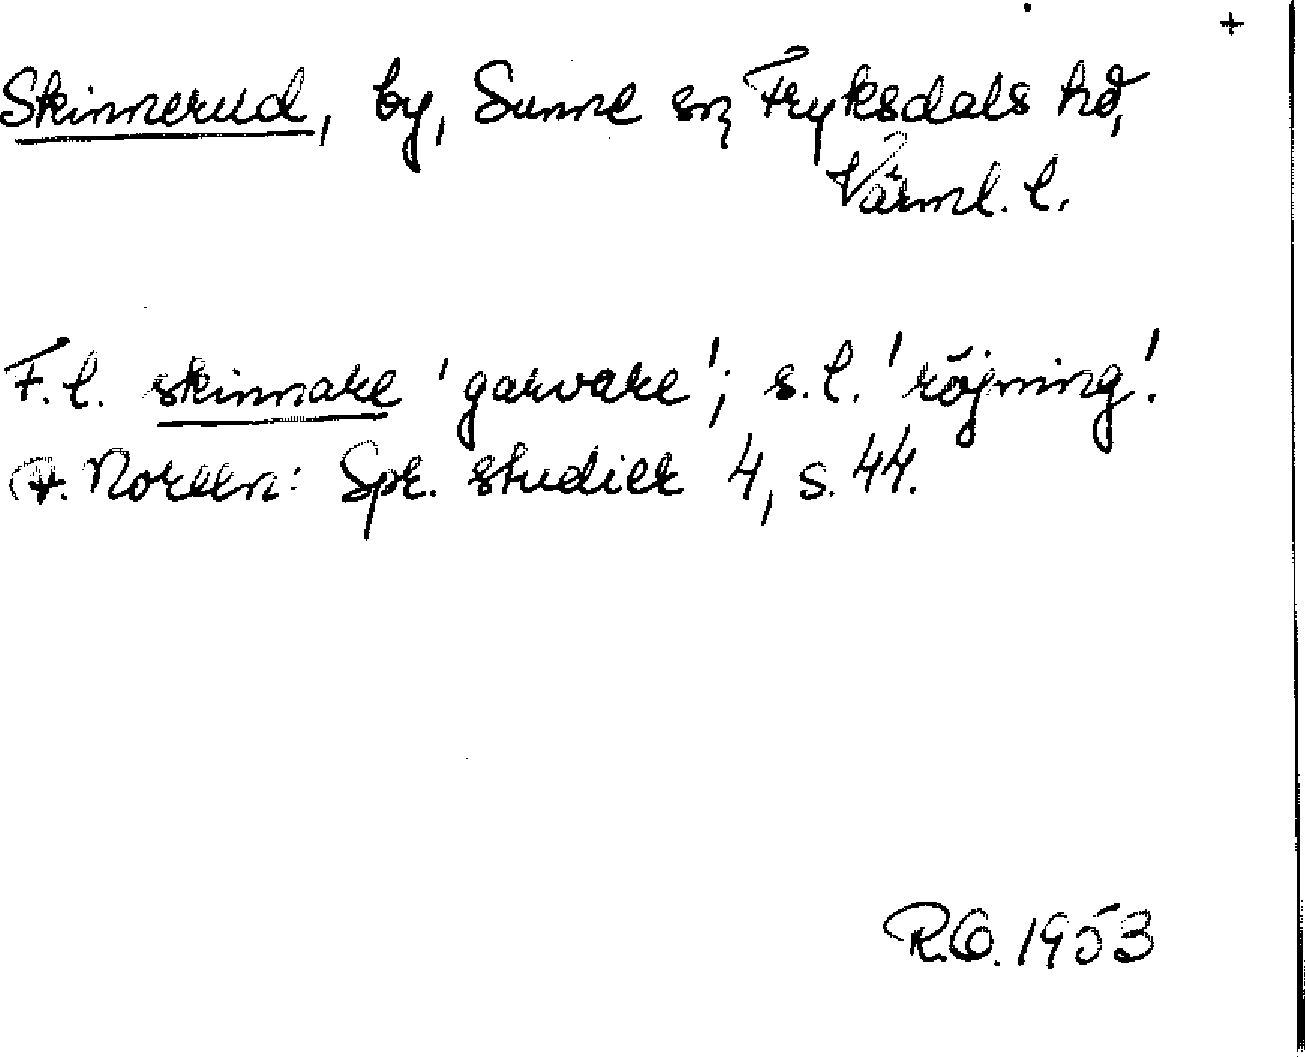 +
Skinnerud, by, Sunne sn, Fryksdals hd,
Värml. l.
F.l. skinnare 'garvare'; s.l. 'röjning'.
A. Noreen: Spr. studier 4, s. 44.
R.O. 1953